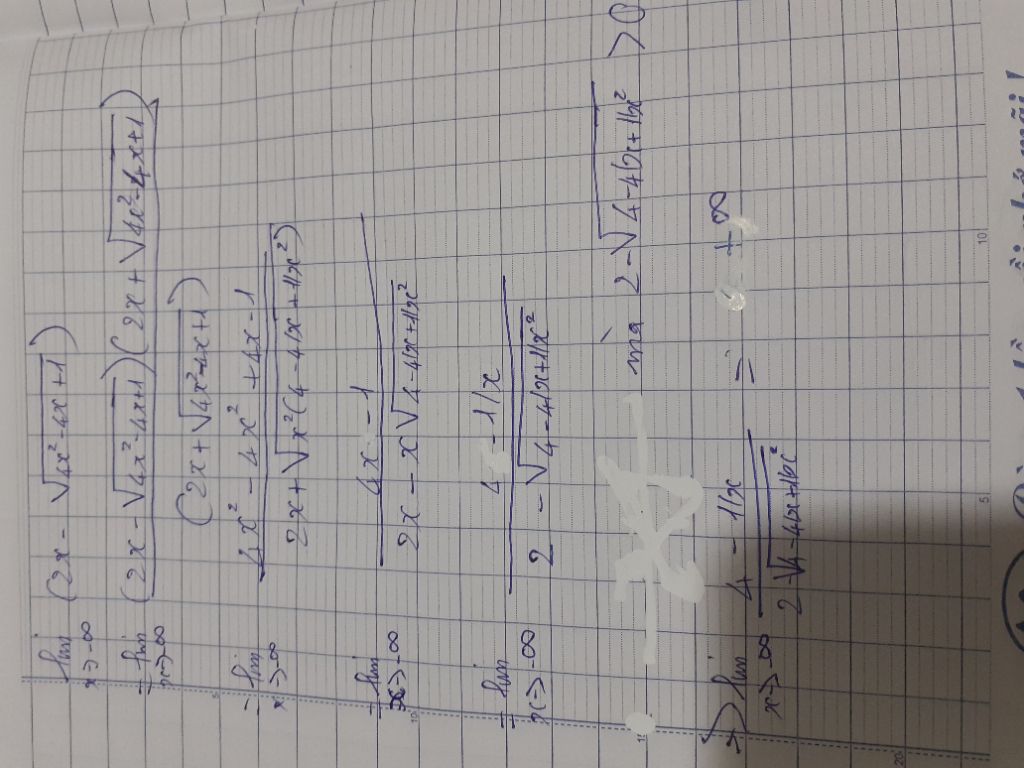 lim x->-∞ (2x - √(4x²-4x+1))
= lim x->-∞ (2x - √(4x²-4x+1))(2x + √(4x²-4x+1)) / (2x + √(4x²-4x+1))
= lim x->-∞ (4x² - 4x² + 4x - 1) / (2x + √(x²(4 - 4/x + 1/x²)))
= lim x->-∞ (4x - 1) / (2x - x√(4-4/x+1/x²))
= lim x->-∞ (4 - 1/x) / (2 - √(4-4/x+1/x²))
mà 2-√(4-4/x+1/x²) > 0
=> lim x->-∞ (4 - 1/x) / (2-√(4-4/x+1/x²)) = +∞
5
10
15
20
5
10